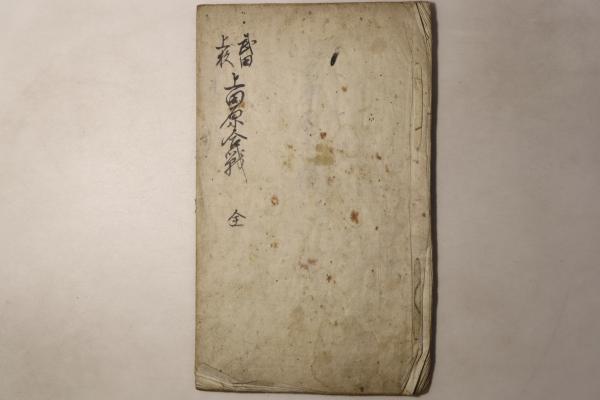 武田
上杦
上田原合戦
全